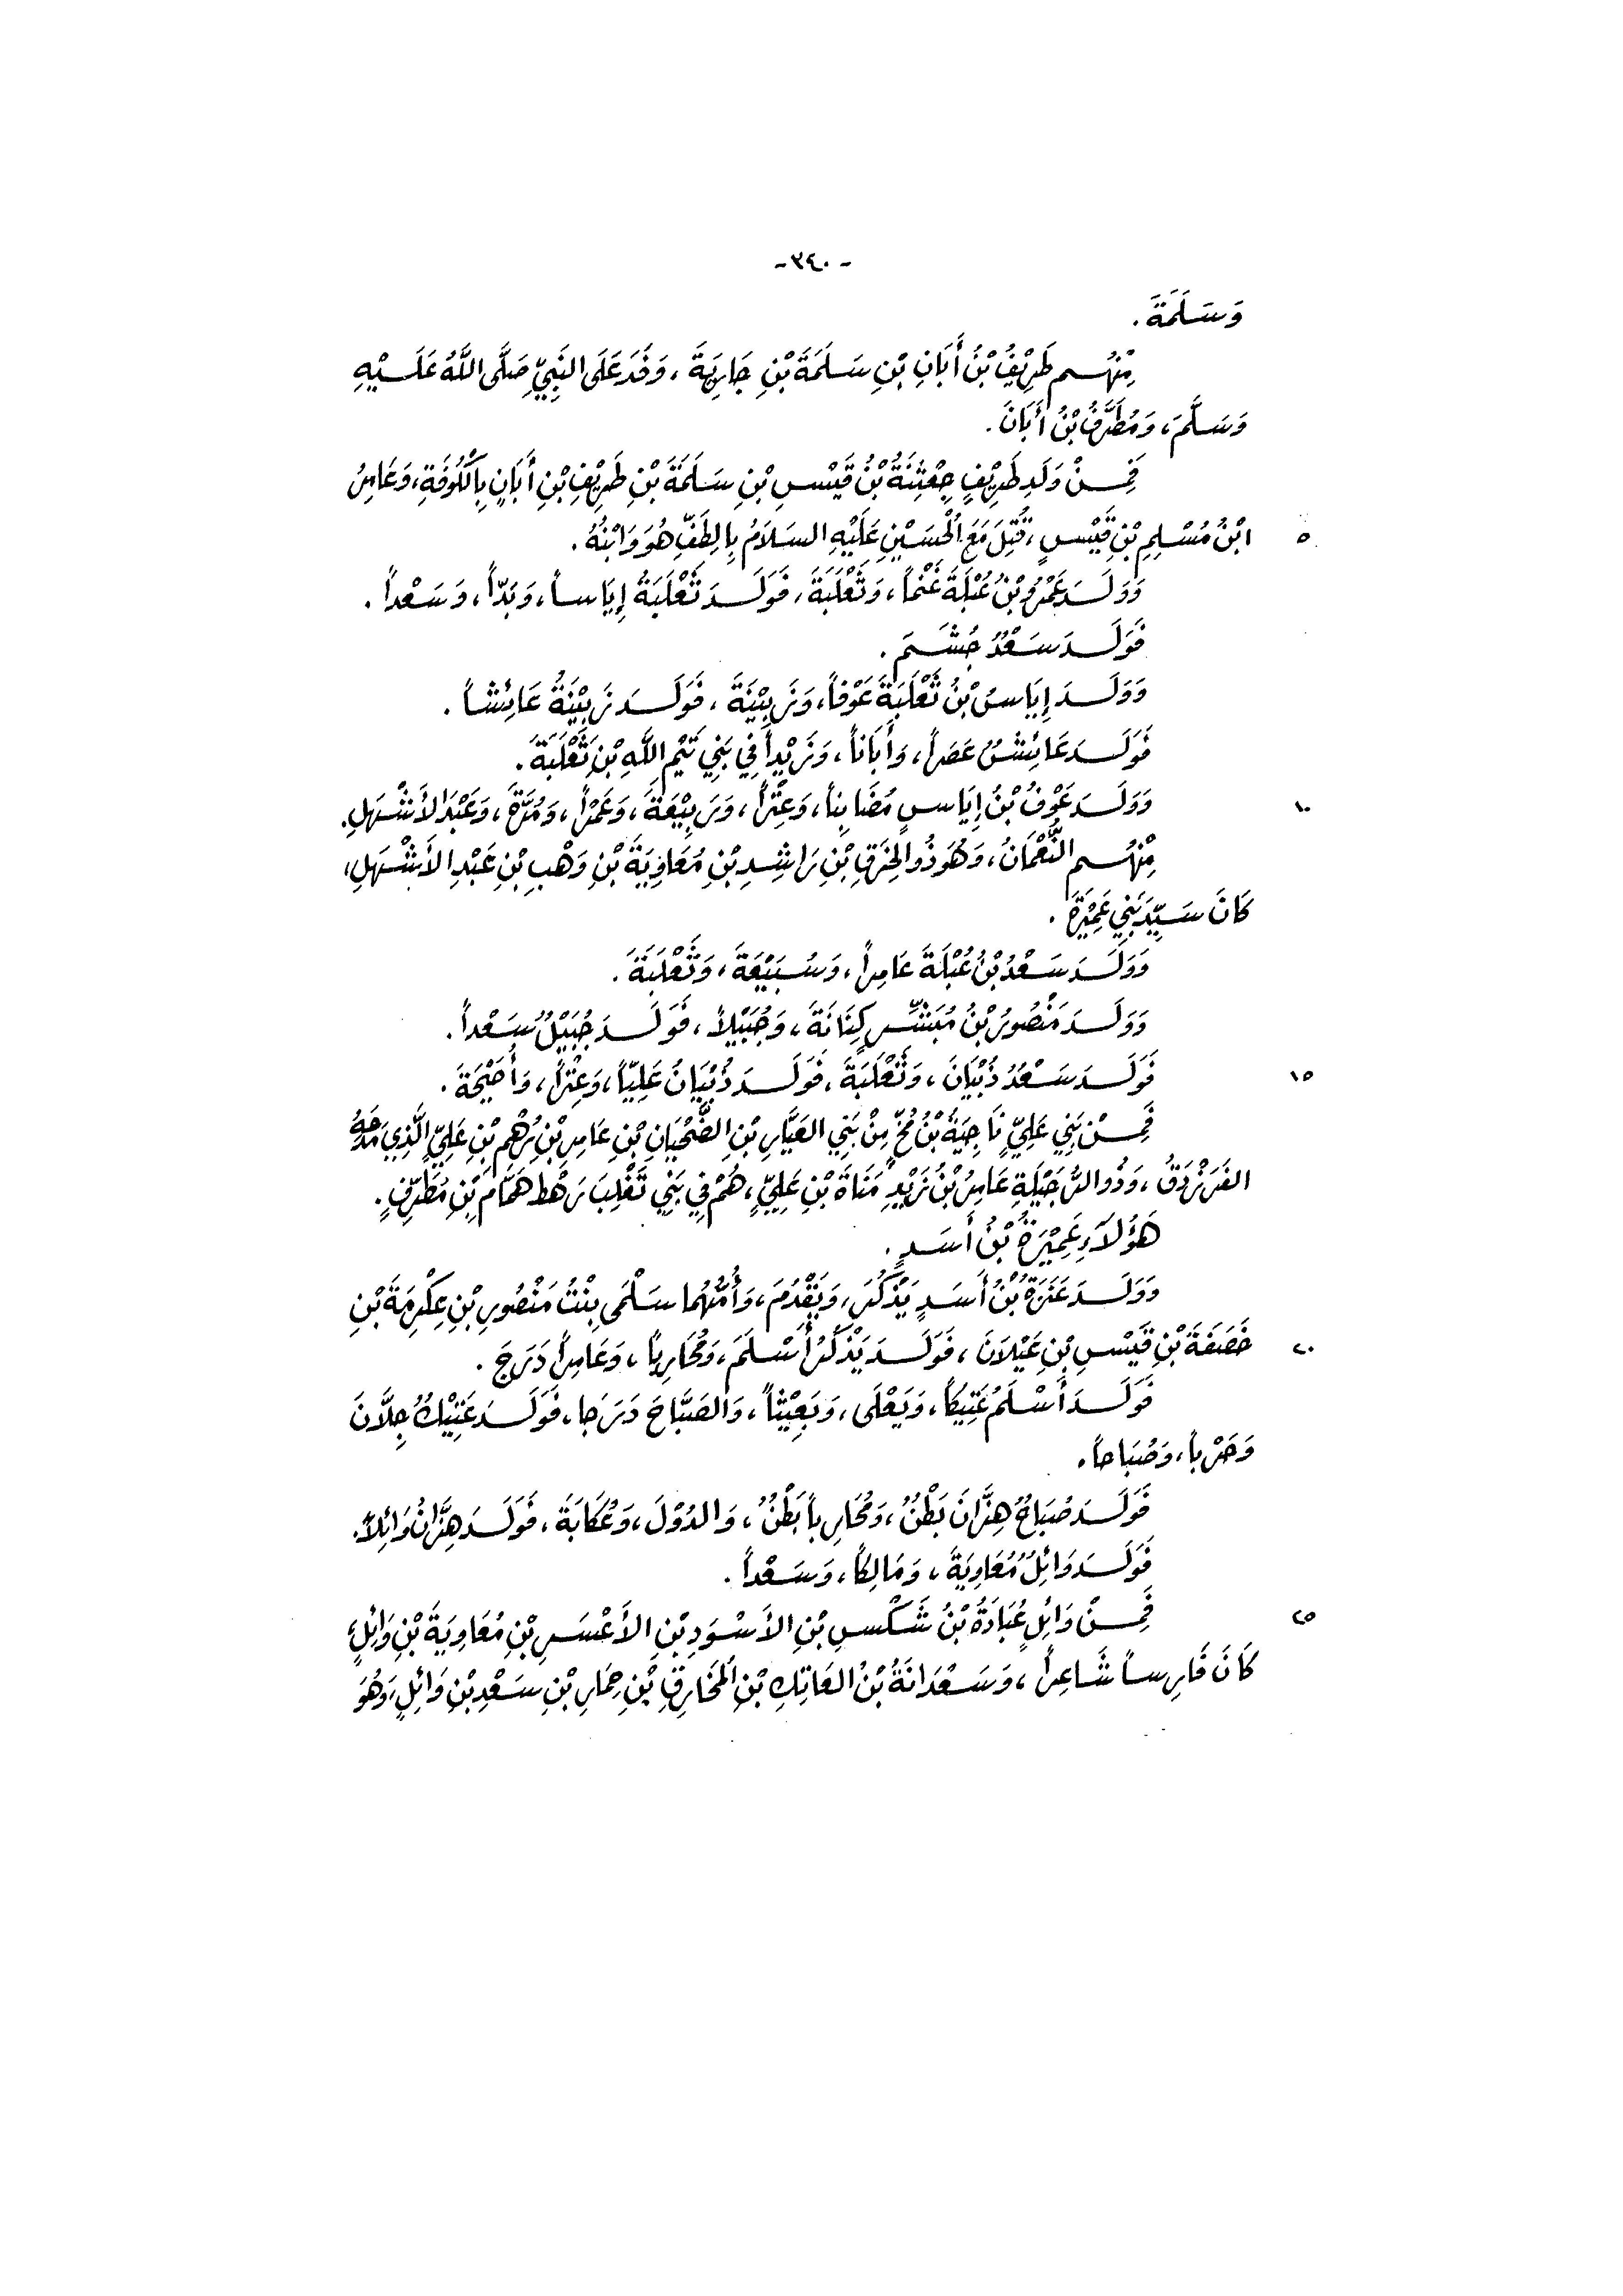 - ٣٤٠ -
وَسَلَمَةَ .
مِنْهُم طَرِيْفُ بْنُ أَبَانِ بْنِ سَلَمَةَ بْنِ جَارِيَةَ ، وَفَدَ عَلَى النَبِيِّ صَلَّى اللَّهُ عَلَيْهِ
وَسَلَّمَ ، وَمُطَرَّفُ بْنُ أَبَانَ .
فَمِنْ وَلَدِ طَرِيْفٍ جِعْثِنَةُ بْنُ قَيْسِ بْنِ سَلَمَةَ بْنِ طَرِيْفِ بْنِ أَبَانٍ بِالكُوفَةِ ، وَعَامِرُ
٥ ابْنُ مُسْلِمِ بْنِ قَيْسٍ ، قُتِلَ مَعَ الْحُسَيْنِ عَلَيْهِ السَلَامُ بِالطَفِّ هُوَ وَابْنُهُ .
وَوَلَدَ عَمْرُو بْنُ عُبْلَةَ غَنْماً ، وَثَعْلَبَةَ ، فَوَلَدَ ثَعْلَبَةُ إِيَاساً ، وَبَدّاً ، وَسَعْداً .
فَوَلَدَ سَعْدٌ جُشَمَ .
وَوَلَدَ إِيَاسُ بْنُ ثَعْلَبَةَ عَوْفاً ، وَزَبِيْنَةَ ، فَوَلَدَ زَبِيْنَةُ عَائِشاً .
فَوَلَدَ عَائِشٌ عَصَراً ، وَأَبَاناً ، وَزَيْداً فِي بَنِي تَيْمِ اللَّهِ بْنِ ثَعْلَبَةَ .
١٠ وَوَلَدَ عَوْفُ بْنُ إِيَاسٍ مُضَابِناً ، وَعِتْراً ، وَرَبِيْعَةَ ، وَعَمْراً ، وَمُرَّةَ ، وَعَبْدَ الأَشْهَلِ .
مِنْهُم النُّعْمَانُ ، وَهُوَ ذُو الخِرَقِ بْنِ رَاشِدِ بْنِ مُعَاوِيَةَ بْنِ وَهْبِ بْنِ عَبْدِ الأَشْهَلِ ،
كَانَ سَيِّدَ بَنِي عَمِيْرَةَ .
وَوَلَدَ سَعْدُ بْنُ عُبْلَةَ عَامِراً ، وَسُبَيْعَةَ ، وَثَعْلَبَةَ .
وَوَلَدَ مَنْصُورُ بْنُ مُبَشِّرٍ كِنَانَةَ ، وَجُبَيْلاً ، فَوَلَدَ جُبَيْلٌ سَعْداً .
١٥ فَوَلَدَ سَعْدٌ ذُبْيَانَ ، وَثَعْلَبَةَ ، فَوَلَدَ ذُبْيَانُ عَلِيّاً ، وَعِتْراً ، وَأُحَيْحَةَ .
فَمِنْ بَنِي عَلِيٍّ نَاجِيَةُ بْنُ مُخٍّ مِنْ بَنِي العَيَّارِ بْنِ الضَّحْيَانِ بْنِ عَامِرِ بْنِ رُهْمِ بْنِ عَلِيٍّ الَّذِي مَدَحَهُ
الفَرَزْدَقُ ، وَذُو الرُجَيْلَةِ عَامِرُ بْنُ زَيْدِ مَنَاةَ بْنِ عَلِيٍّ ، هُمْ فِي بَنِي تَغْلِبَ رَهْطُ هَمَّامِ بْنِ مُطَرِّفٍ .
هَؤُلَاءِ عَمِيْرَةُ بْنُ أَسَدٍ .
وَوَلَدَ عَنَزَةُ بْنُ أَسَدٍ يَذْكُرَ ، وَيَقْدُمَ ، وَأُمُّهُمَا سَلْمَى بِنْتُ مَنْصُورِ بْنِ عِكْرِمَةَ بْنِ
٢٠ خَصَفَةَ بْنِ قَيْسِ بْنِ عَيْلَانَ ، فَوَلَدَ يَذْكُرُ أَسْلَمَ ، وَمُحَارِباً ، وَعَامِراً دَرَجَ .
فَوَلَدَ أَسْلَمُ عَتِيْكاً ، وَيَعْلَى ، وَبَعِيْثاً ، وَالصَبَّاحَ دَرَجا ، فَوَلَدَ عَتِيْكُ جِلَّانَ
وَحَرْباً ، وَصُبَاحاً .
فَوَلَدَ صُبَاحٌ هِزَّانَ بَطْنٌ ، وَمُحَارِباً بَطْنٌ ، وَالدُوْلَ ، وَعُكَابَةَ ، فَوَلَدَ هِزَّانُ وَائِلاً .
فَوَلَدَ وَائِلٌ مُعَاوِيَةَ ، وَمَالِكاً ، وَسَعْداً .
٢٥ فَمِنْ وَائِلٍ عُبَادَةُ بْنُ شَكْسِ بْنِ الأَسْوَدِ بْنِ الأَعْسَرِ بْنِ مُعَاوِيَةَ بْنِ وَائِلٍ ،
كَانَ فَارِساً شَاعِراً ، وَسَعْدَانَةُ بْنُ العَاتِكِ بْنِ الْمُخَارِقِ بْنِ حِمَارِ بْنِ سَعْدِ بْنِ وَائِلٍ ، وَهُوَ